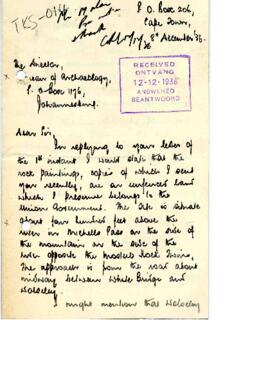 TKS-0
P. O. Box 206,
Cape Town,
8th December '36.
RECEIVED
ONTVANG
12-12-1936
ANSWERED
BEANTWOORD
The Director,
Bureau of Archaeology,
P. O. Box 1176,
Johannesburg.
Dear Sir,
In replying to your letter of
the 1st instant I would state that the
rock paintings, copies of which I sent
you recently, are on unfenced land
which I presume belongs to the
Union Government. The site is situate
about four hundred feet above the
river in Mitchells Pass on the side of
the mountain on the side of the
river opposite the
The approach is from the road about
midway between White Bridge and
Wolseley
I might mention that Wolseley